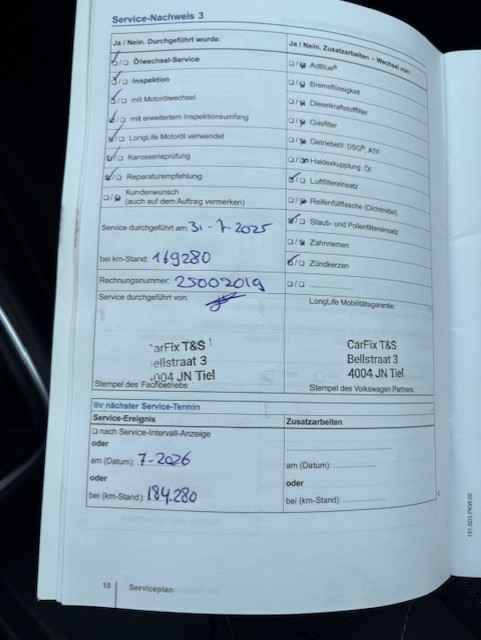 Service-Nachweis 3
Ja / Nein. Durchgeführt wurde:
Ölwechsel-Service
Inspektion
mit Motorölwechsel
mit erweitertem Inspektionsumfang
LongLife Motoröl verwendet
Karosserieprüfung
Reparaturempfehlung
Kundenwunsch
(auch auf dem Auftrag vermerken)
Service durchgeführt am: 31-7-2025
bei km-Stand: 169280
Rechnungsnummer: 25002019
Service durchgeführt von:
CarFix T&S
ellstraat 3
4004 JN Tiel
Stempel des Fachbetriebs
Ja / Nein. Zusatzarbeiten – Wechsel von:
AdBlue®
Bremsflüssigkeit
Dieselkraftstofffilter
Gasfilter
Getriebeöl: DSG®, ATF
Haldexkupplung: Öl
Luftfiltereinsatz
Reifenfüllflasche (Dichtmittel)
Staub- und Pollenfiltereinsatz
Zahnriemen
Zündkerzen
LongLife Mobilitätsgarantie
CarFix T&S
Bellstraat 3
4004 JN Tiel
Stempel des Volkswagen Partners
Ihr nächster Service-Termin
Service-Ereignis
nach Service-Intervall-Anzeige
oder
am (Datum): 7-2026
oder
bei (km-Stand): 184.280
Zusatzarbeiten
am (Datum):
oder
bei (km-Stand):
Serviceplan